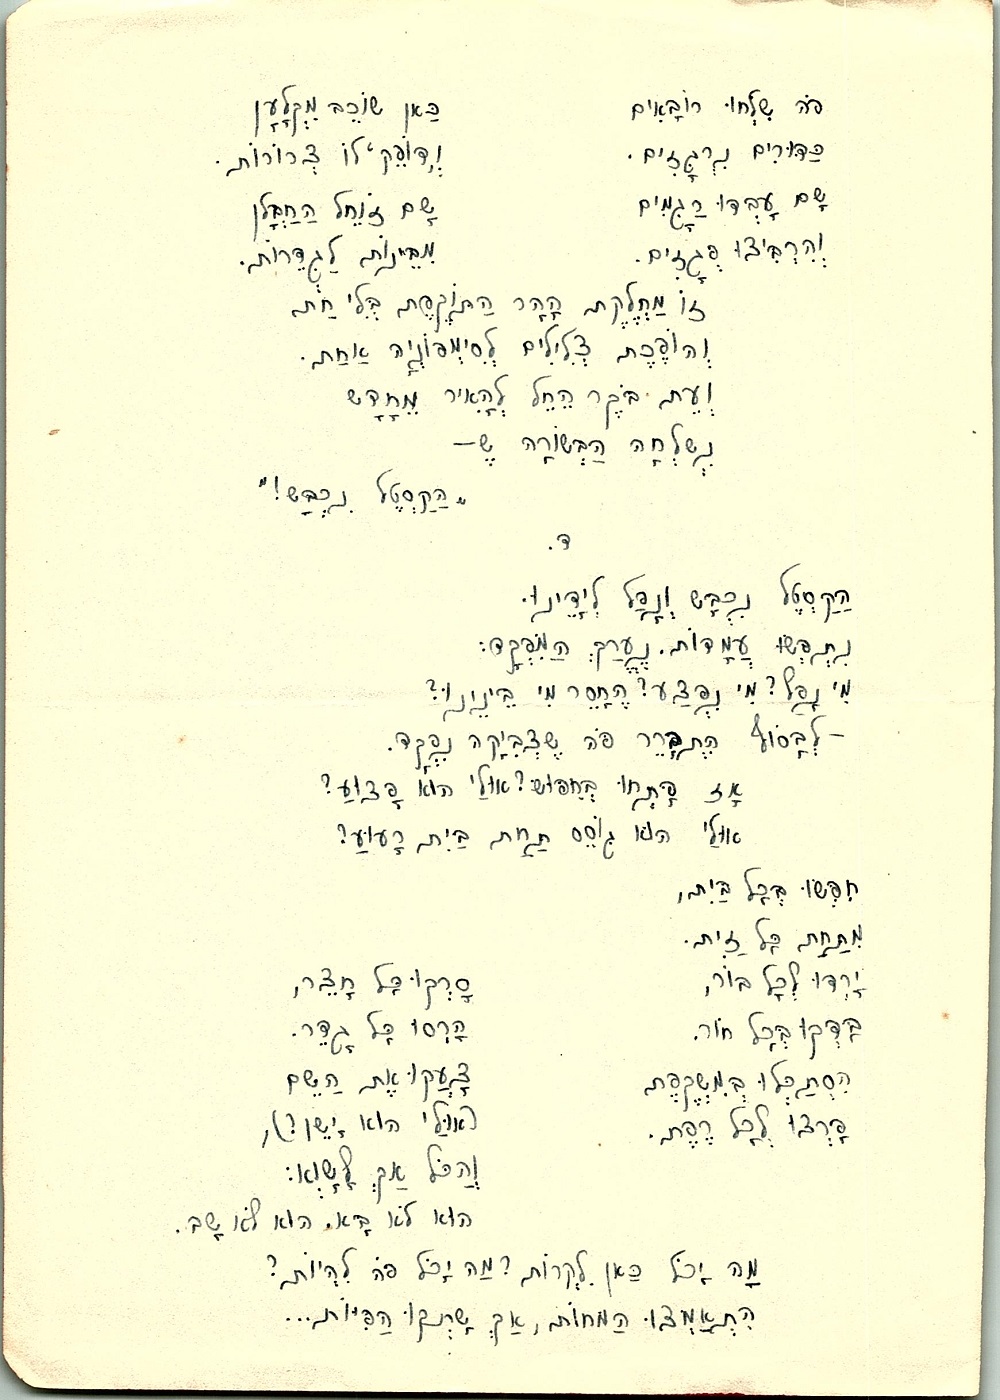 פֹּה שָׁלְחוּ רוֹבָאִים
כַּדּוּרִים נִרְגָּזִים.
שָׁם עָבְדוּ רַגָּמִים
וְהִרְבִּיצוּ פְּגָזִים.
כַּאן שׁוֹכֵב מִקְלָעָן
וְדוֹפֵק לוֹ צְרוֹרוֹת.
שָׁם זוֹחֵל הַחַבְּלָן
מִבֵּינוֹת לַגְּדֵרוֹת.
זוֹ מַחְלֶקֶת הָהָר הַתּוֹקֶפֶת בְּלִי חַת
וְהוֹפֶכֶת צְלִילִים לְסִימְפוֹנְיָה אַחַת.
וְעֵת בֹּקֶר הֵחֵל לְהָאִיר מֵחָדָשׁ
נִשְׁלְחָה הַבְּשׂוֹרָה שֶׁ—
„הַקַסְטֶל נִכְבָּשׁ!"
ד.
הַקַסְטֶל נִכְבָּשׁ וְנָפַל לְיָדֵינוּ.
נִתְפְּשׂוּ עֲמָדוֹת. נֶעֱרַךְ הַמִּפְקָד:
מִי נָפַל? מִי נִפְצַע? הֶחָסֵר מִי בֵּינֵינוּ?
— לְבַסּוֹף הִתְבָּרֵר פֹּה שֶׁצְּבִיקָה נִפְקָד.
אָז פָּתְחוּ בְּחִפּוּשׂ? אוּלַי הוּא פָּצוּעַ?
אוּלַי הוּא גּוֹסֵס תַּחַת בַּיִת רָעוּעַ?
חִפְּשׂוּ בְּכָל בַּיִת,
מִתַּחַת כָּל זַיִת.
יָרְדוּ לְכָל בּוֹר,
בָּדְקוּ בְּכָל חוֹר.
הִסְתַּכְּלוּ בְּמִשְׁקֶפֶת
פָּרְצוּ לְכָל רֶפֶת.
סָרְקוּ כָּל חָצֵר,
הָרְסוּ כָּל גָּדֵר.
צָעֲקוּ אֶת הַשֵּׁם
(אוּלַי הוּא יָשֵׁן?),
וְהַכֹּל אַךְ לַשָּׁוְא:
הוּא לֹא בָּא. הוּא לֹא שָׁב.
מָה יָכֹל כַּאן לִקְרוֹת? מַה יָכֹל פֹּה לִהְיוֹת?
הִתְאַמְּצוּ הַמּוֹחוֹת, אַךְ שָׁתְקוּ הַפִּיּוֹת...